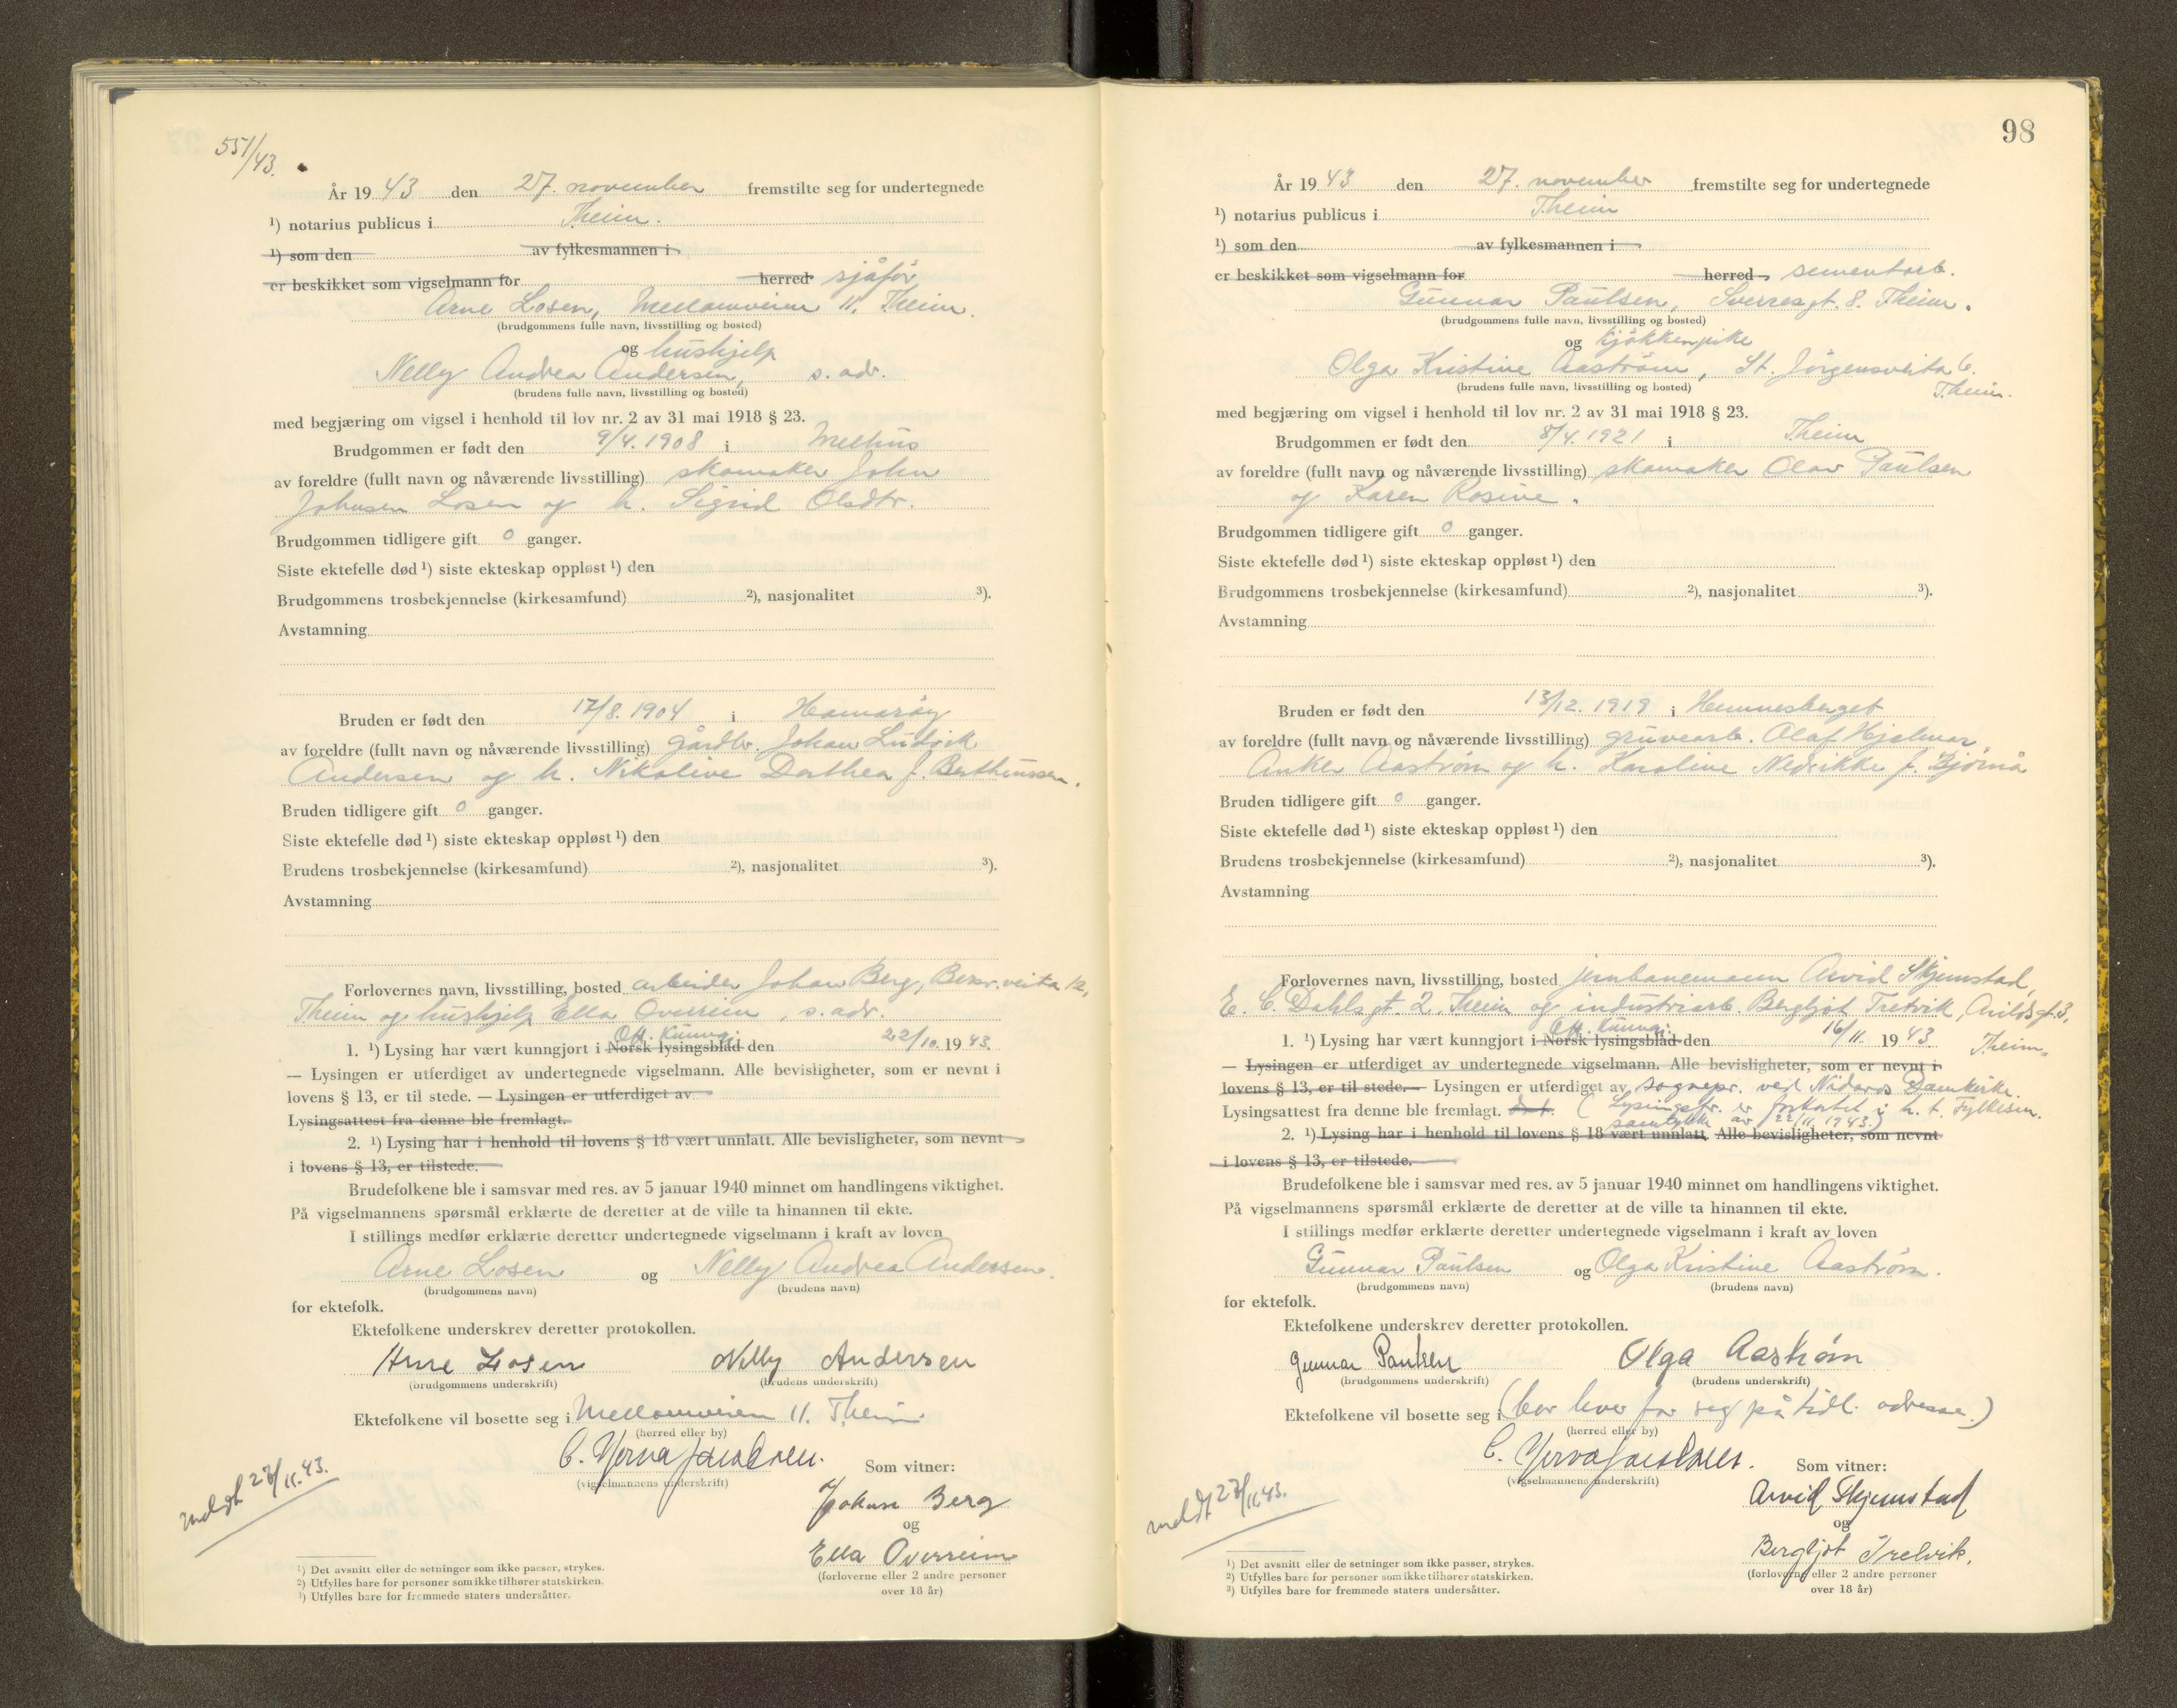 551/43.
År 19 43 den 27. november fremstilte seg for undertegnede
¹) notarius publicus i Theim.
¹) som den av fylkesmannen i
er beskikket som vigselmann for herred sjåfør
Arne Losen, Mellomveien 11. Theim.
(brudgommens fulle navn, livsstilling og bosted)
og hushjelp
Nelly Andrea Andersen, s. adr.
(brudens fulle navn, livsstilling og bosted)
med begjæring om vigsel i henhold til lov nr. 2 av 31 mai 1918 § 23.
Brudgommen er født den 9/4. 1908 i Melhus
av foreldre (fullt navn og nåværende livsstilling) skomaker John
Johnsen Losen og h. Sigrid Olsdtr.
Brudgommen tidligere gift 0 ganger.
Siste ektefelle død ¹) siste ekteskap oppløst ¹) den
Brudgommens trosbekjennelse (kirkesamfund) ²), nasjonalitet ³).
Avstamning
Bruden er født den 17/8. 1904 i Hamarøy
av foreldre (fullt navn og nåværende livsstilling) gårdbr. Johan Ludvik
Andersen og h. Nikoline Dorthea f. Bertheussen.
Bruden tidligere gift 0 ganger.
Siste ektefelle død ¹) siste ekteskap oppløst ¹) den
Brudens trosbekjennelse (kirkesamfund) ²), nasjonalitet ³).
Avstamning
Forlovernes navn, livsstilling, bosted arbeider Johan Berg, veita 12,
Theim og hushjelp Ella Overrein, s. adr.
Off. kunngj.
1. ¹) Lysing har vært kunngjort i Norsk lysingsblad den 22/10. 19 43.
— Lysingen er utferdiget av undertegnede vigselmann. Alle bevisligheter, som er nevnt i
lovens § 13, er til stede. — Lysingen er utferdiget av
Lysingsattest fra denne ble fremlagt.
2. ¹) Lysing har i henhold til lovens § 18 vært unnlatt. Alle bevisligheter, som nevnt
i lovens § 13, er tilstede.
Brudefolkene ble i samsvar med res. av 5 januar 1940 minnet om handlingens viktighet.
På vigselmannens spørsmål erklærte de deretter at de ville ta hinannen til ekte.
I stillings medfør erklærte deretter undertegnede vigselmann i kraft av loven
Arne Losen og Nelly Andrea Andersen.
(brudgommens navn) (brudens navn)
for ektefolk.
Ektefolkene underskrev deretter protokollen.
Arne Losen Nelly Andersen
(brudgommens underskrift) (brudens underskrift)
Ektefolkene vil bosette seg i Mellomveien 11. Theim.
(herred eller by)
C. Jacobsen.
(vigselmannens underskrift) Som vitner:
meldt 27/11.43.
Berg
og
Ella Overrein
(forloverne eller 2 andre personer
over 18 år)
¹) Det avsnitt eller de setninger som ikke passer, strykes.
²) Utfylles bare for personer som ikke tilhører statskirken.
³) Utfylles bare for fremmede staters undersåtter.
98
År 19 43 den 27. november fremstilte seg for undertegnede
¹) notarius publicus i Theim
¹) som den av fylkesmannen i
er beskikket som vigselmann for herred sementarb.
Gunnar Paulsen, Sverresgt. 8. Theim.
(brudgommens fulle navn, livsstilling og bosted)
og kjøkkenpike
Olga Kristine Aastrøm, St. Jørgensveita 6.
Theim.
(brudens fulle navn, livsstilling og bosted)
med begjæring om vigsel i henhold til lov nr. 2 av 31 mai 1918 § 23.
Brudgommen er født den 8/4. 1921 i Theim
av foreldre (fullt navn og nåværende livsstilling) skomaker Olav Paulsen
og Karen Rosine.
Brudgommen tidligere gift 0 ganger.
Siste ektefelle død ¹) siste ekteskap oppløst ¹) den
Brudgommens trosbekjennelse (kirkesamfund) ²), nasjonalitet ³).
Avstamning
Bruden er født den 13/12. 1919 i Hemnesberget
av foreldre (fullt navn og nåværende livsstilling) gruvearb. Olaf Hjalmar
Anker Aastrøm og h. Karoline Nedrikke f. Bjørnå
Bruden tidligere gift 0 ganger.
Siste ektefelle død ¹) siste ekteskap oppløst ¹) den
Brudens trosbekjennelse (kirkesamfund) ²), nasjonalitet ³).
Avstamning
Forlovernes navn, livsstilling, bosted jernbanemann Arvid Skjemstad,
E. C. Dahlsgt. 2. Theim og industriarb. Bergljot Tretvik, Arildsgt. 3,
Theim.
Off. kunngj.
1. ¹) Lysing har vært kunngjort i Norsk lysingsblad den 16/11. 19 43.
— Lysingen er utferdiget av undertegnede vigselmann. Alle bevisligheter, som er nevnt i
lovens § 13, er til stede. — Lysingen er utferdiget av sognepr. ved Nidaros Domkirke.
Lysingsattest fra denne ble fremlagt. dat. (Lysingsfr. er forkortet i h. t. Fylkesm.
samtykke av 22/11. 1943.)
2. ¹) Lysing har i henhold til lovens § 18 vært unnlatt. Alle bevisligheter, som nevnt
i lovens § 13, er tilstede.
Brudefolkene ble i samsvar med res. av 5 januar 1940 minnet om handlingens viktighet.
På vigselmannens spørsmål erklærte de deretter at de ville ta hinannen til ekte.
I stillings medfør erklærte deretter undertegnede vigselmann i kraft av loven
Gunnar Paulsen og Olga Kristine Aastrøm.
(brudgommens navn) (brudens navn)
for ektefolk.
Ektefolkene underskrev deretter protokollen.
Gunnar Paulsen Olga Aastrøm
(brudgommens underskrift) (brudens underskrift)
Ektefolkene vil bosette seg i (bor hver for seg på tidl. adresse.)
(herred eller by)
C. Jacobsen.
(vigselmannens underskrift) Som vitner:
meldt 27/11.43.
Arvid Skjemstad
og
Bergljot Tretvik.
(forloverne eller 2 andre personer
over 18 år)
¹) Det avsnitt eller de setninger som ikke passer, strykes.
²) Utfylles bare for personer som ikke tilhører statskirken.
³) Utfylles bare for fremmede staters undersåtter.